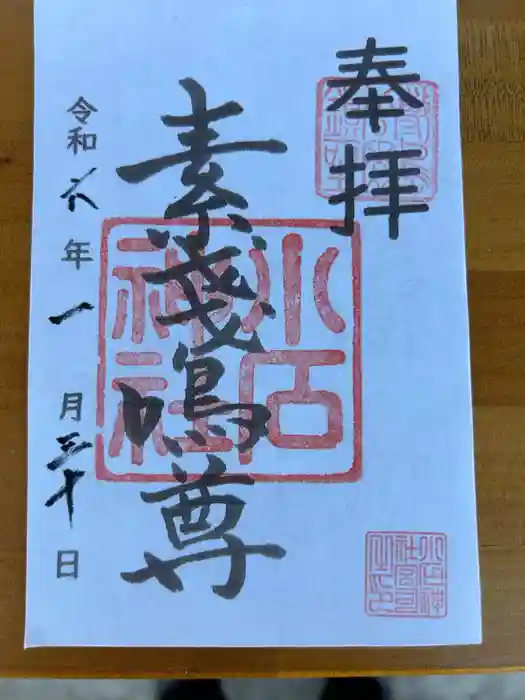 奉拝
素戔嗚尊
小石神社
令和六年一月三十日